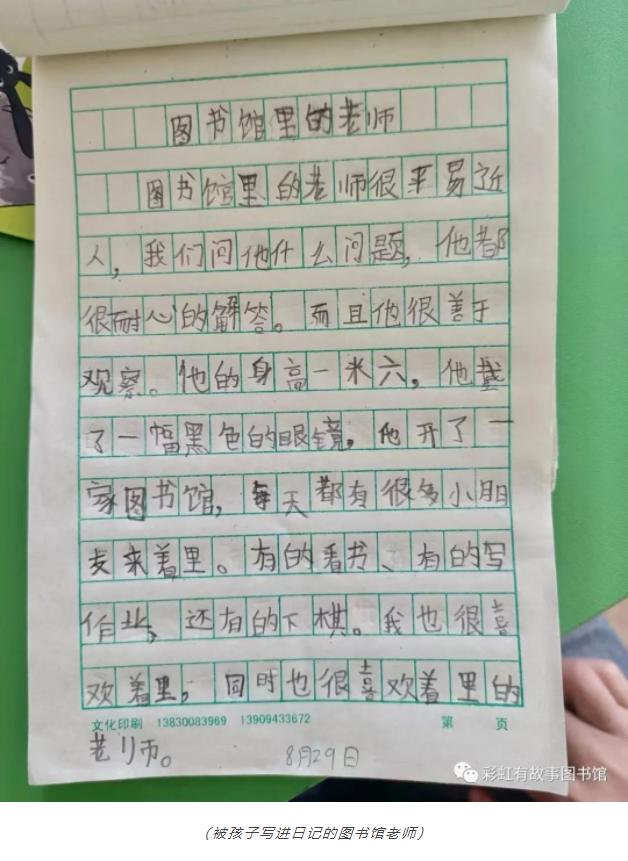 图书馆里的老师
图书馆里的老师很平易近
人，我们问他什么问题，他都
很耐心的解答。而且他很善于
观察。他的身高一米六，他戴
了一幅黑色的眼镜。他开了一
家图书馆，每天都有很多小朋
友来着里。有的看书、有的写
作业，还有的下棋。我也很喜
欢着里，同时也很喜欢着里的
文化印刷 13830083969 13909433672 第 页
老师。 8月29日
彩虹有故事图书馆
（被孩子写进日记的图书馆老师）